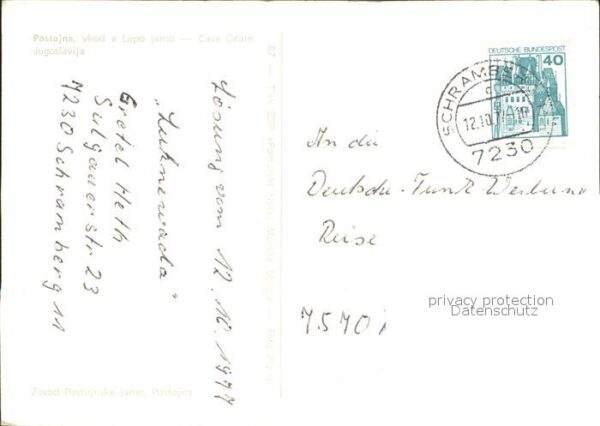 Postojna, vhod v Lepo jamo — Cave Grate
Jugoslavija
Lösung vom 12.10.1977
Gretel Heth
Sulgauerstr 23
7230 Schramberg 11
Zavod Postojnske jame, Postojna
DEUTSCHE BUNDESPOST
40
SCHRAMBERG
12.10.77
7230
An die
Deutsche-Funk Werbung
Reise
7570
privacy protection
Datenschutz